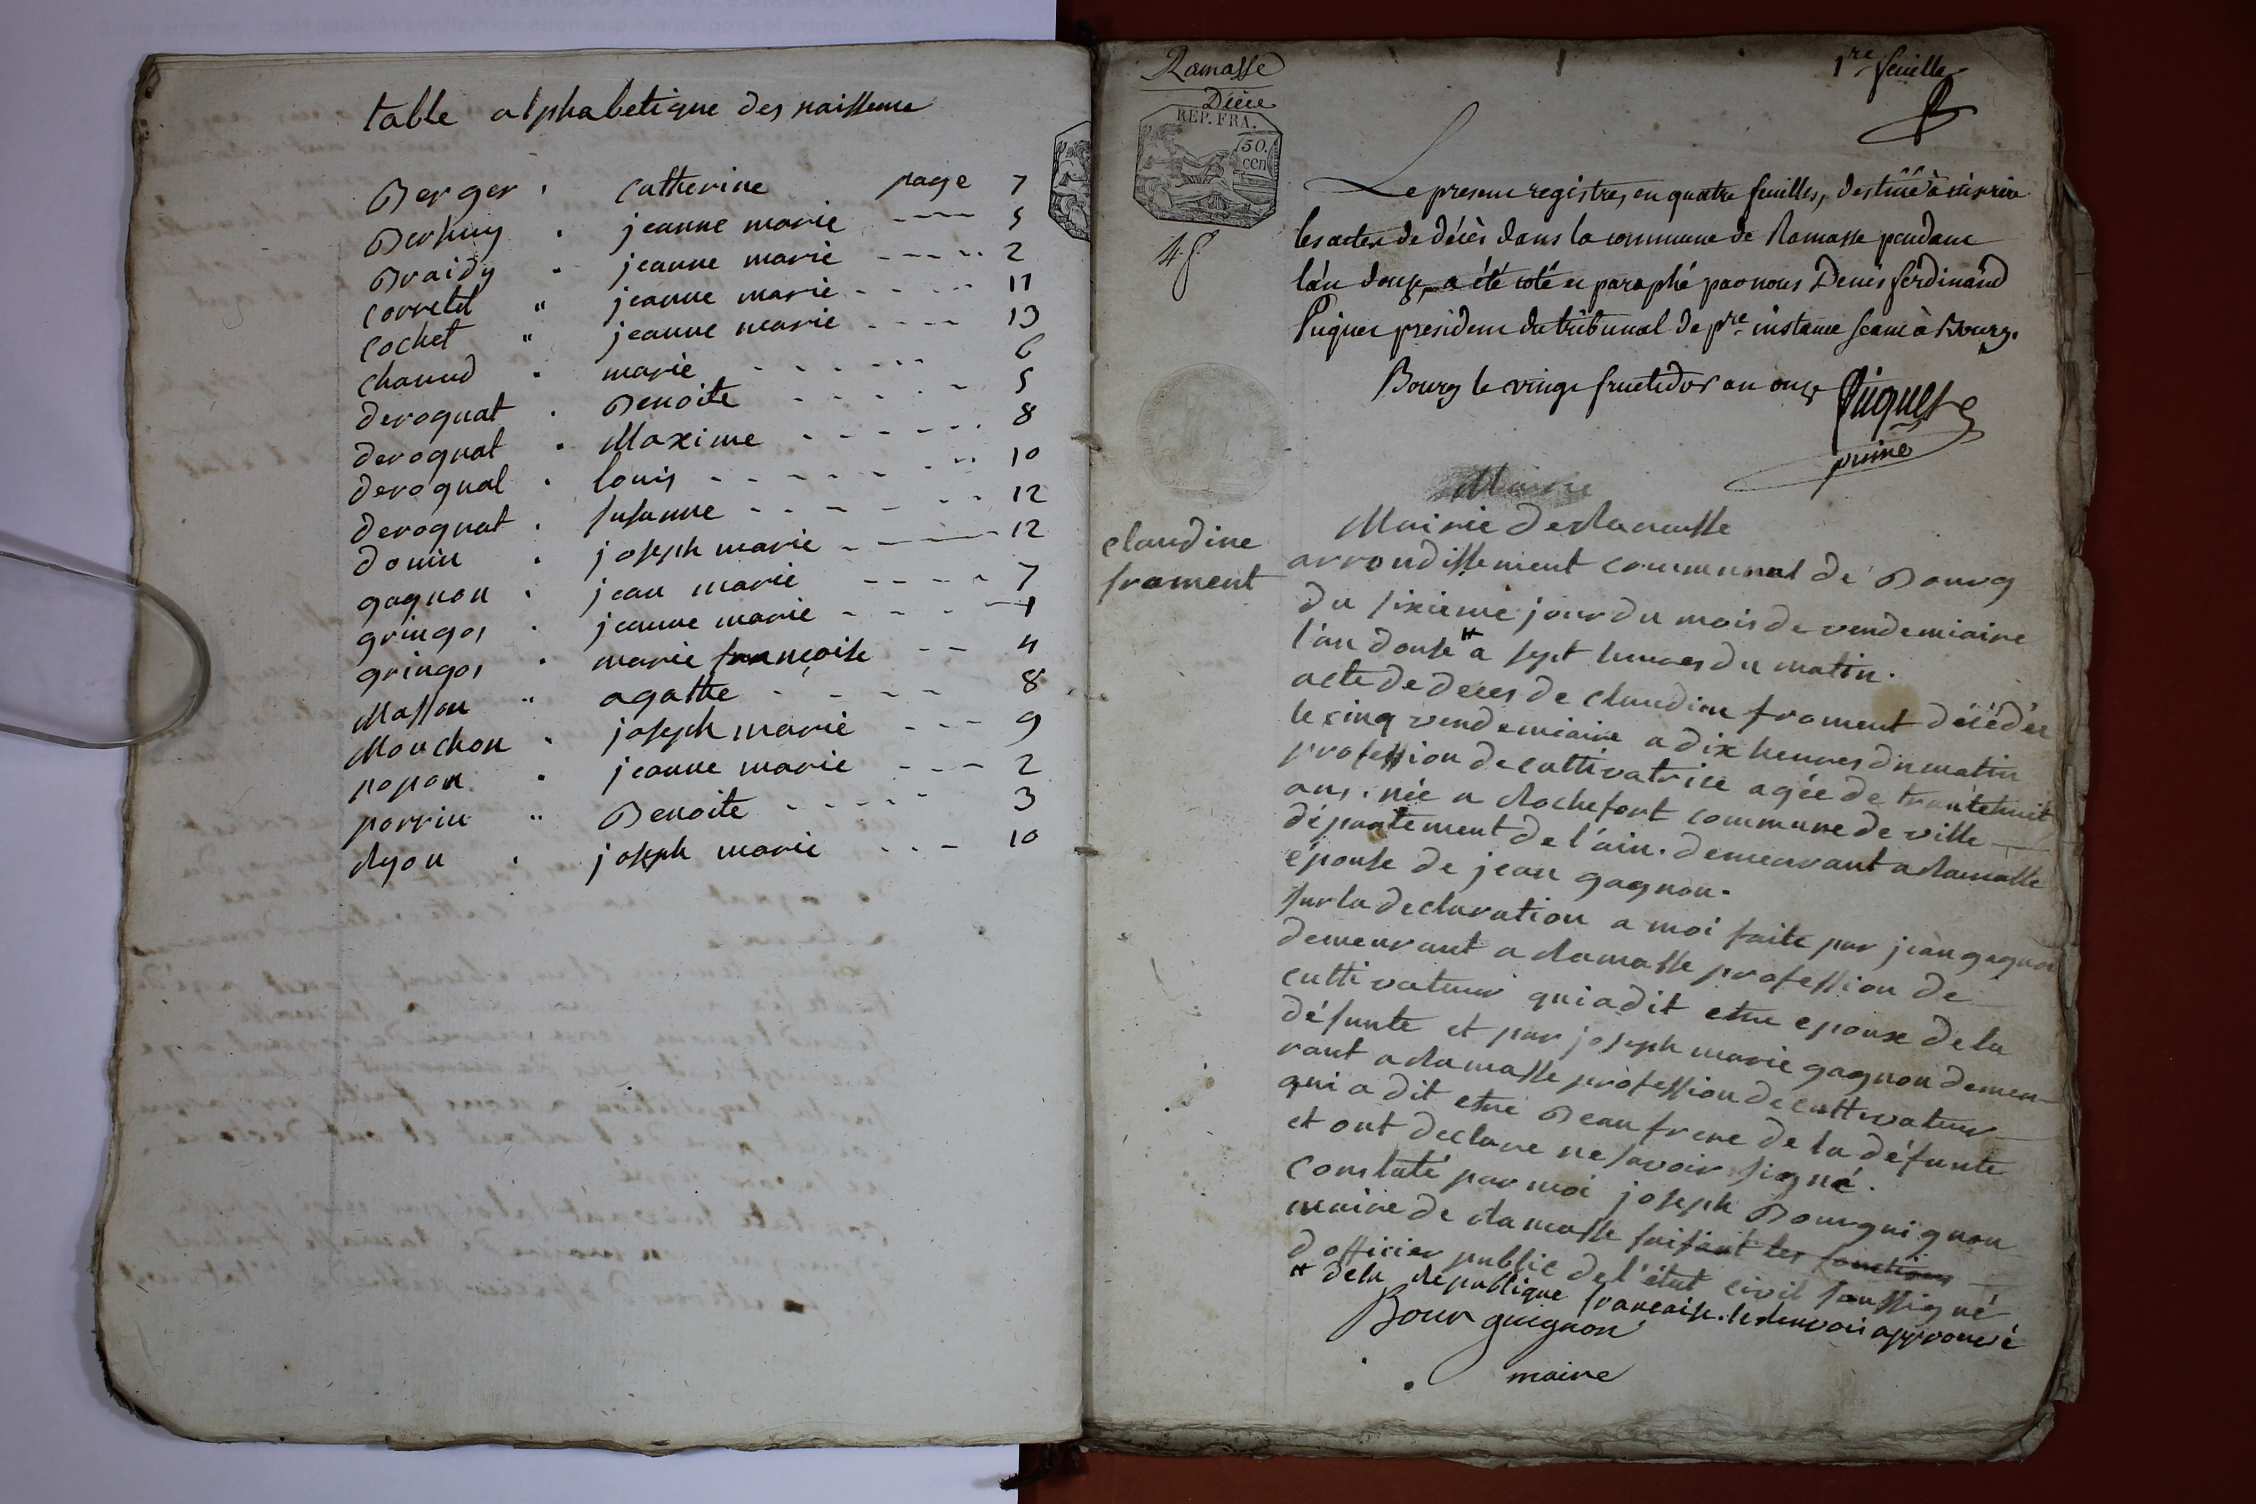 table alphabetique des naissence
Berger . catherine page 7
Berhuy . jeanne marie ---- 5
Braidy . jeanne marie ----- 2
corretel " jeanne marie ----- 11
cochet " jeanne marie ---- 13
chanud . marie ------ 6
deroquat . Benoite ------ 5
deroquat . Maxime ------ 8
deroquat . louis ------- 10
deroquat . susanne ------ 12
douin . joseph marie ---- 12
gagnon . jean marie ---- 7
gringos . jeanne marie ---- 1
gringos . marie françoise -- 4
Masson " agathe ----- 8
Mouchon . joseph marie --- 9
popon . jeanne marie --- 2
perrin " Benoite ----- 3
Ryon . joseph marie --- 10
Ramasse
Décés
REP. FRA.
50.
cen
4. f.
1re feuille
Le present registre, en quatre feuilles, destiné à inscrire
les actes de décès dans la commune de Ramasse pendant
l'an douze, a été coté et paraphé par nous Denis ferdinand
Piquet president du tribunal de pre. instance seant à Bourg.
Bourg le vingt fructidor an onze Piquet
Mairie
Mairie de Ramasse
claudine
froment
arrondissement communal de Bourg
du sixieme jour du mois de vendemiaire
l'an douse # a sept heures du matin.
acte de deces de claudine froment décédée
le cinq vendemiaire a dix heures du matin
profession de cultivatrice agée de trantehuit
ans. née a Rochefort commune de ville
département de l'ain. demeurant a Ramasse
épouse de jean gagnon.
sur la declaration a moi faite par jean gagnon
demeurant a Ramasse profession de
cultivateur qui a dit etre epoux de la
défunte et par joseph marie gagnon demeu-
rant a Ramasse profession de cultivateur
qui a dit etre Beau frere de la défunte
et ont declare ne savoir signé.
constaté par moi joseph Bourguignon
maire de Ramasse faisant les fonctions
d'officier public de l'état civil soussigné
# de la république française. le renvoi approuvé
Bourguignon
maire